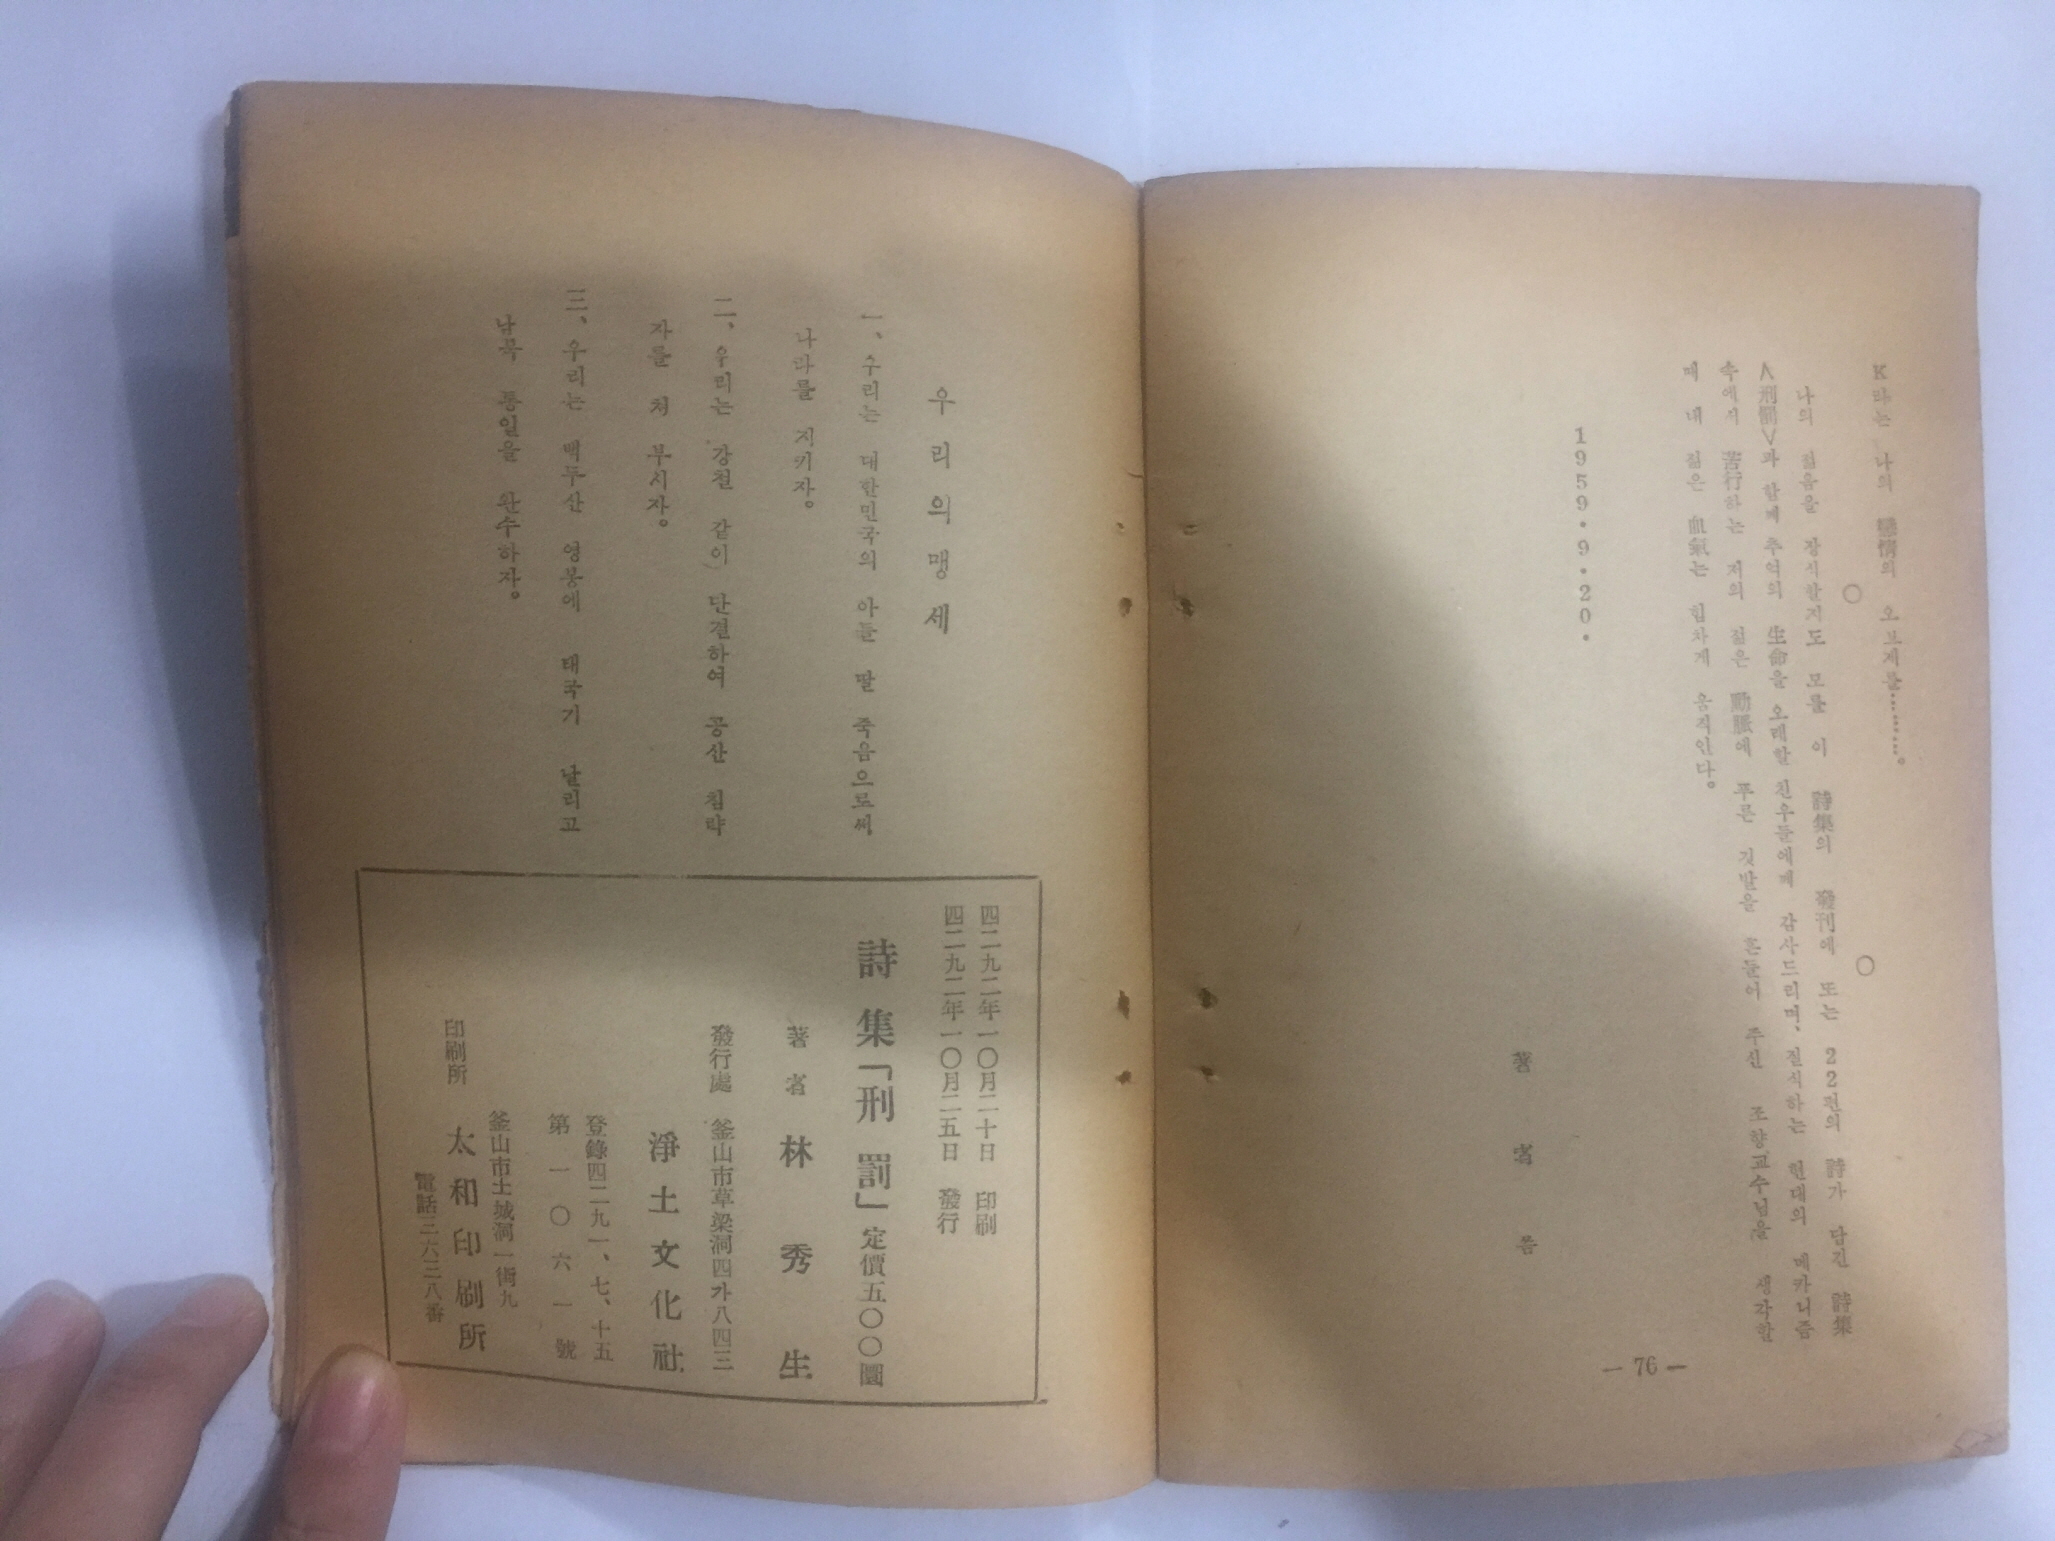 K라는 나의 戀情의 오브제를………。
○ ○
나의 젊음을 장식할지도 모를 이 詩集의 發刊에 또는 22편의 詩가 담긴 詩集
∧刑罰∨과 함께 추억의 生命을 오래할 친우들에께 감사드리며、질식하는 현대의 메카니즘
속에서 苦行하는 저의 젊은 動脈에 푸른 깃발을 흔들어 주신 조향교수님을 생각할
때 내 젊은 血氣는 힘차게 움직인다。
1959.9.20.
著者
— 76 —
우리의맹세
一、우리는 대한민국의 아들 딸 죽음으로써
나라를 지키자。
二、우리는 강철 같이 단결하여 공산 침략
자를 처 부시자。
三、우리는 백두산 영봉에 태극기 날리고
남북 통일을 완수하자。
四二九二年一〇月二十日 印刷
四二九二年一〇月二五日 發行
詩集「刑罰」定價五〇〇圜
著者 林秀生
發行處 釜山市草梁洞四가八四三
淨土文化社
登錄四二九一、七、十五
第一〇六一號
釜山市土城洞一街九
印刷所 太和印刷所
電話三六三八番